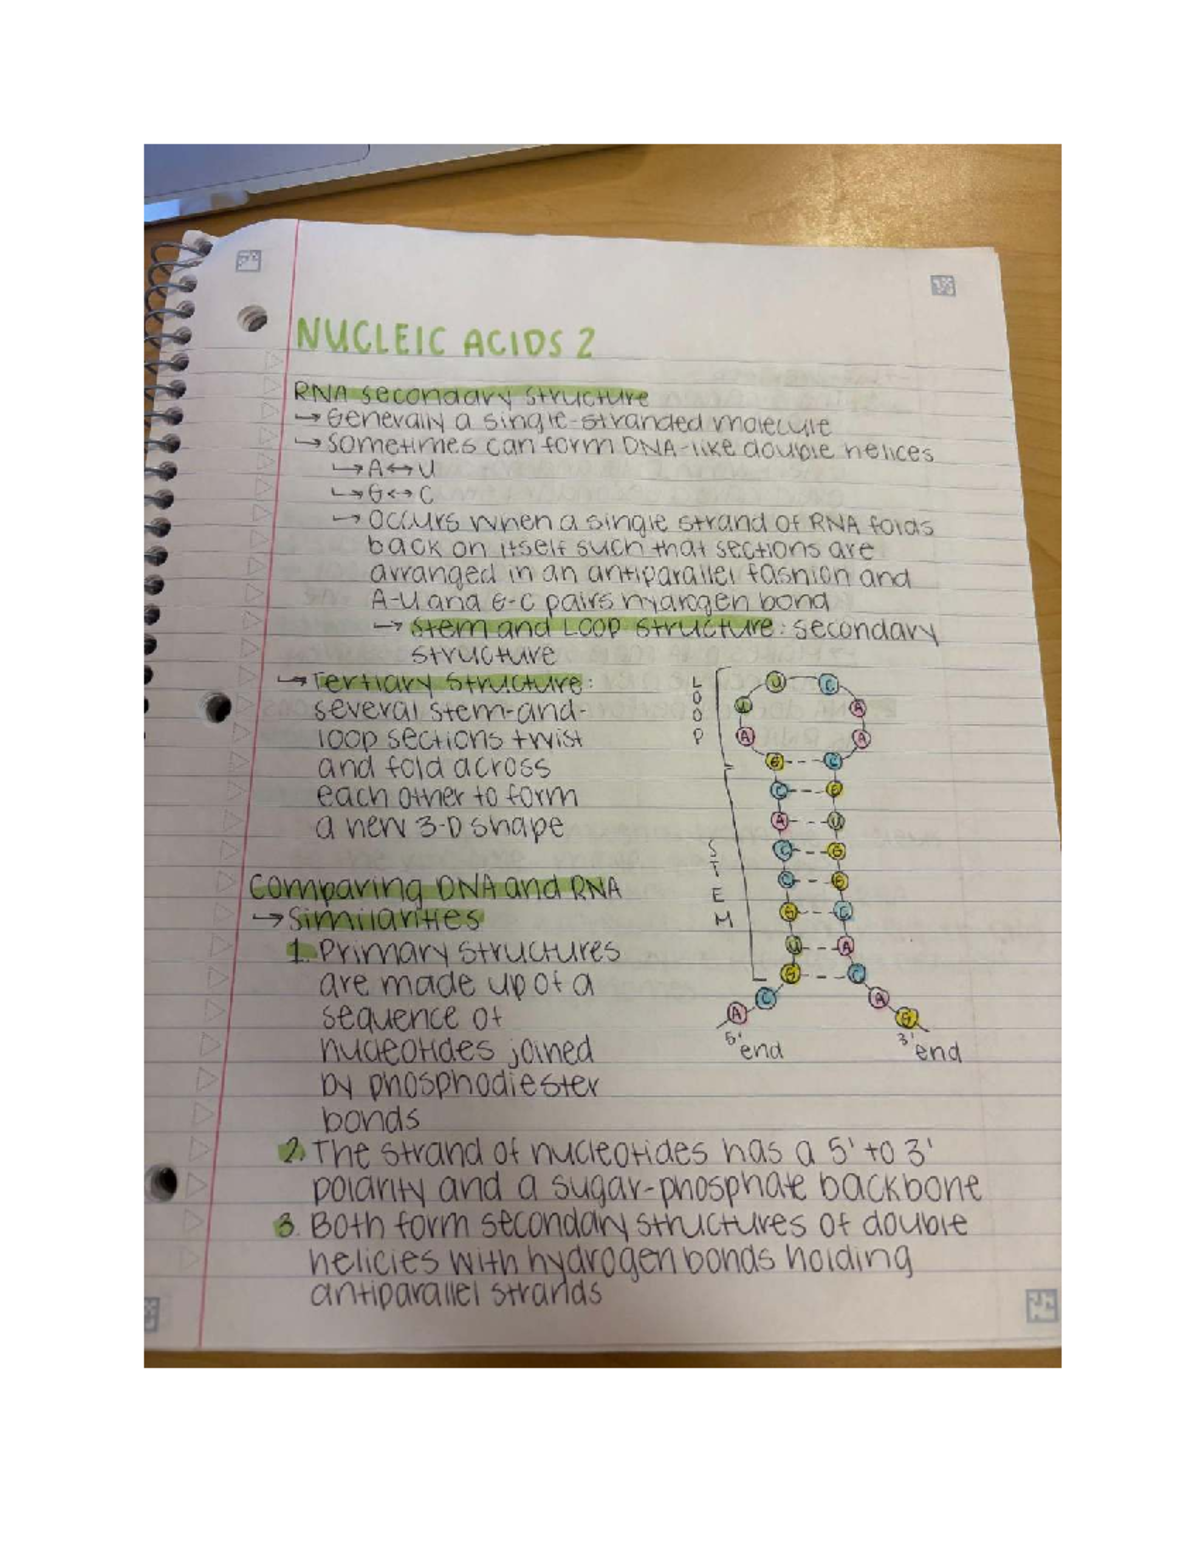 NUCLEIC ACIDS 2
RNA secondary structure
→ Generally a single-stranded molecule
→ Sometimes can form DNA-like double helices
↳ A ↔ U
↳ G ↔ C
→ Occurs when a single strand of RNA folds
back on itself such that sections are
arranged in an antiparallel fashion and
A-U and G-C pairs hydrogen bond
→ Stem and Loop structure: secondary
structure
→ Tertiary Structure:
several stem-and-
loop sections twist
and fold across
each other to form
a new 3-D shape
LOOP
U C
U A
A A
G - - C
C - - G
A - - U
C - - G
C - - G
G - - C
U - - A
G - - C
C A
A G
STEM
5' end
3' end
Comparing DNA and RNA
→ Similarities
1. Primary structures
are made up of a
sequence of
nucleotides joined
by phosphodiester
bonds
2. The strand of nucleotides has a 5' to 3'
polarity and a sugar-phosphate backbone
3. Both form secondary structures of double
helicies with hydrogen bonds holding
antiparallel strands